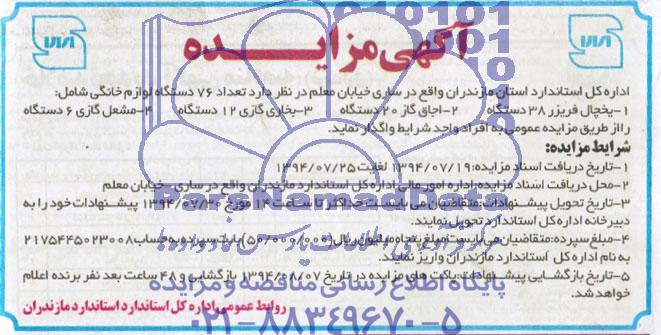 آگهی مزایده
اداره کل استاندارد استان مازندران واقع در ساری خیابان معلم در نظر دارد تعداد ۷۶ دستگاه لوازم خانگی شامل:
۱-یخچال فریزر ۳۸ دستگاه ۲-اجاق گاز ۲۰ دستگاه ۳-بخاری گازی ۱۲ دستگاه ۴-مشعل گازی ۶ دستگاه
را از طریق مزایده عمومی به افراد واجد شرایط واگذار نماید.
شرایط مزایده:
۱-تاریخ دریافت اسناد مزایده: ۱۳۹۴/۰۷/۱۹ لغایت ۱۳۹۴/۰۷/۲۵
۲-محل دریافت اسناد مزایده: اداره امور مالی اداره کل استاندارد مازندران واقع در ساری-خیابان معلم
۳-تاریخ تحویل پیشنهادات: متقاضیان می بایست حداکثر تا ساعت ۱۴ مورخ ۱۳۹۴/۰۷/۳۰ پیشنهادات خود را به
دبیرخانه اداره کل استاندارد تحویل نمایند.
۴-مبلغ سپرده: متقاضیان می بایست مبلغ پنجاه میلیون ریال (۵۰/۰۰۰/۰۰۰) بابت سپرده به حساب ۲۱۷۵۴۴۵۰۲۳۰۰۸
به نام اداره کل استاندارد مازندران واریز نمایند.
۵-تاریخ بازگشایی پیشنهادات: پاکت های مزایده در تاریخ ۱۳۹۴/۰۸/۰۷ بازگشایی و ۴۸ ساعت بعد نفر برنده اعلام
خواهد شد.
روابط عمومی اداره کل استاندارد استاندارد مازندران
پایگاه اطلاع رسانی مناقصه و مزایده
۰۲۱-۸۸۳۴۹۶۷۰-۵